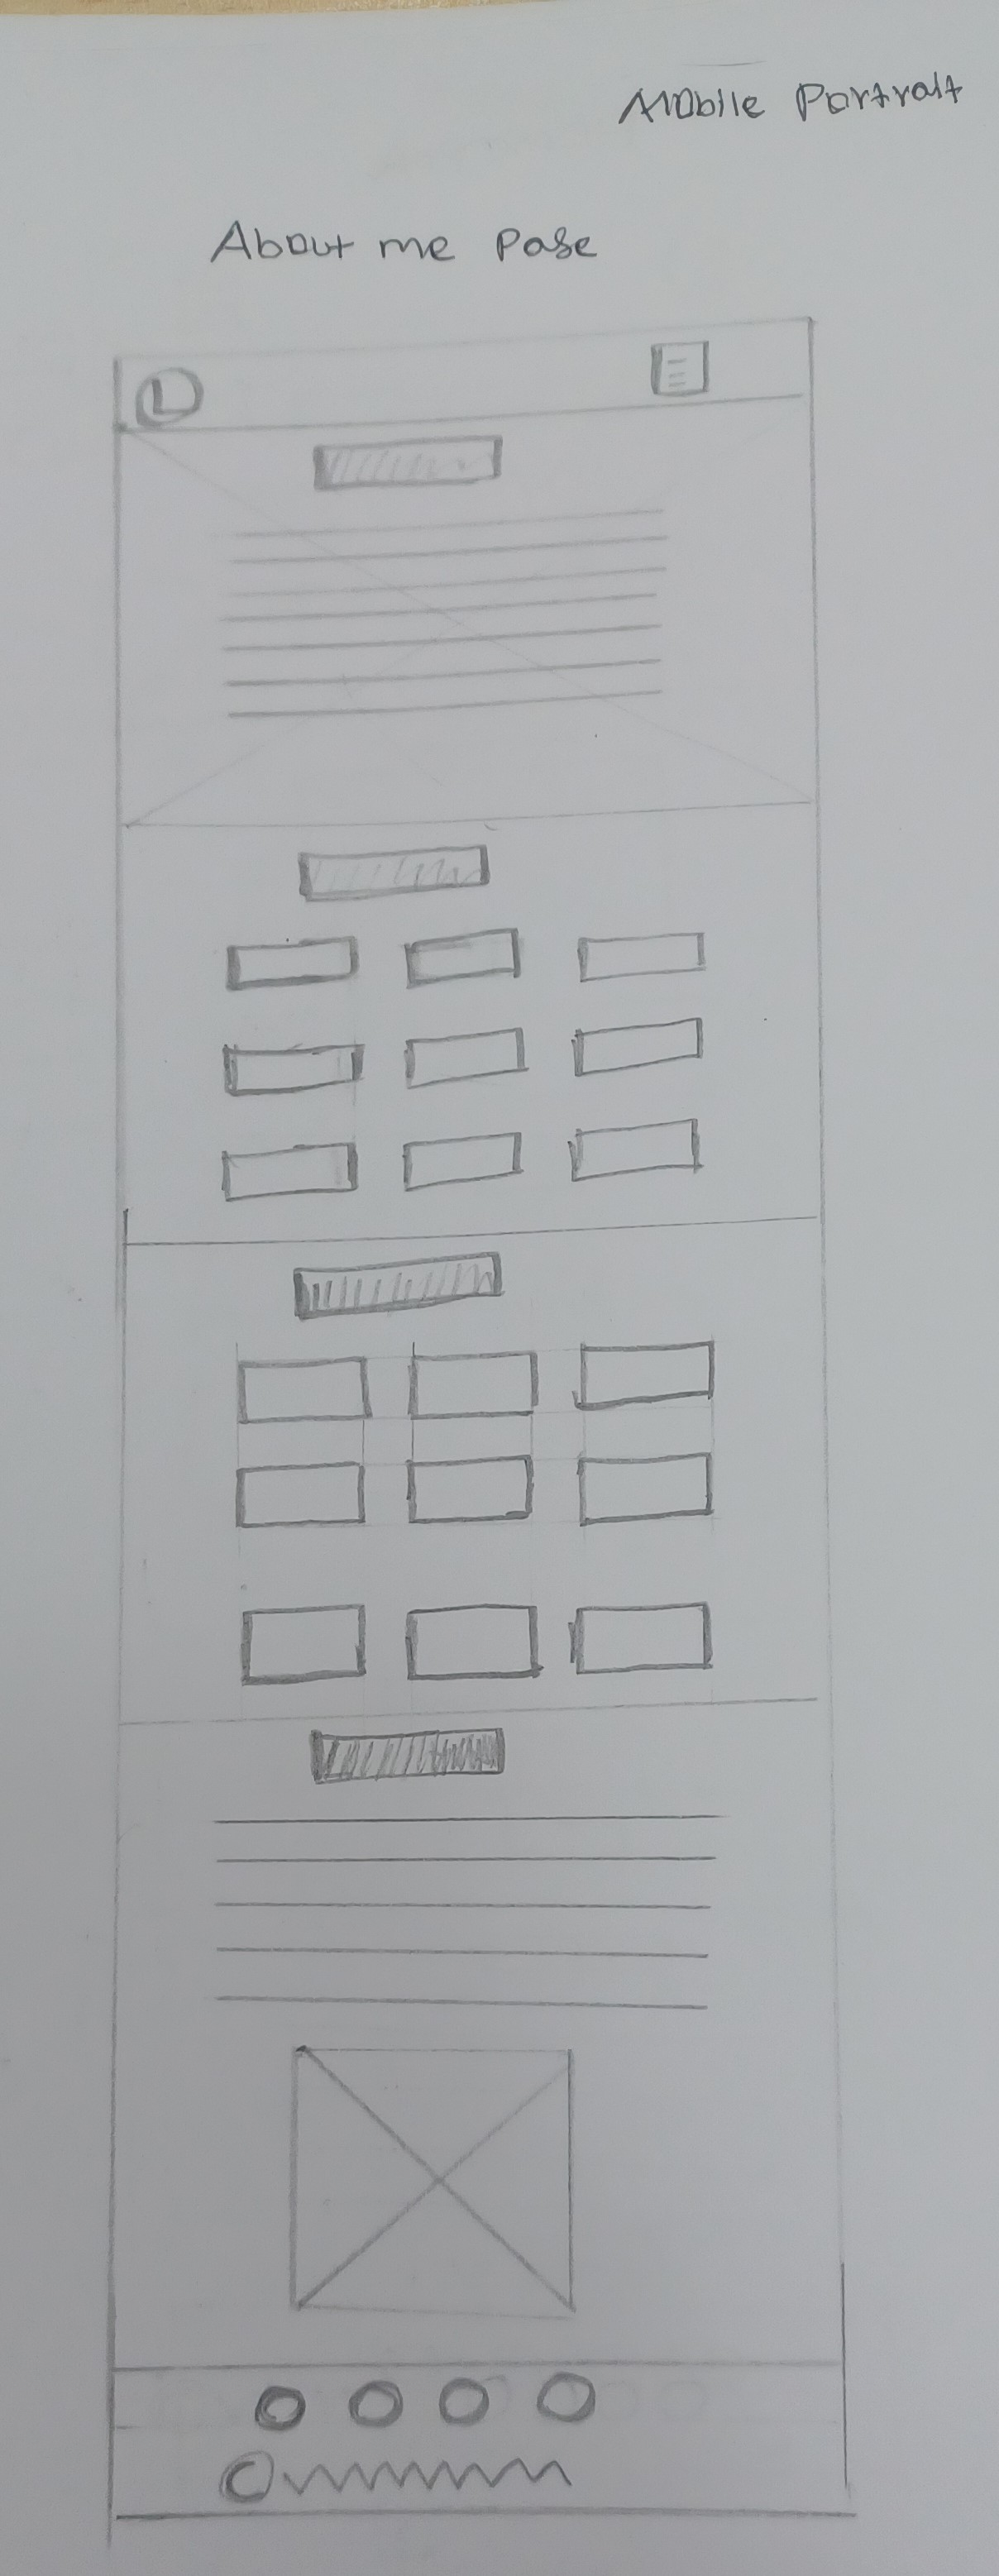 Mobile Portrait
About me Page
L